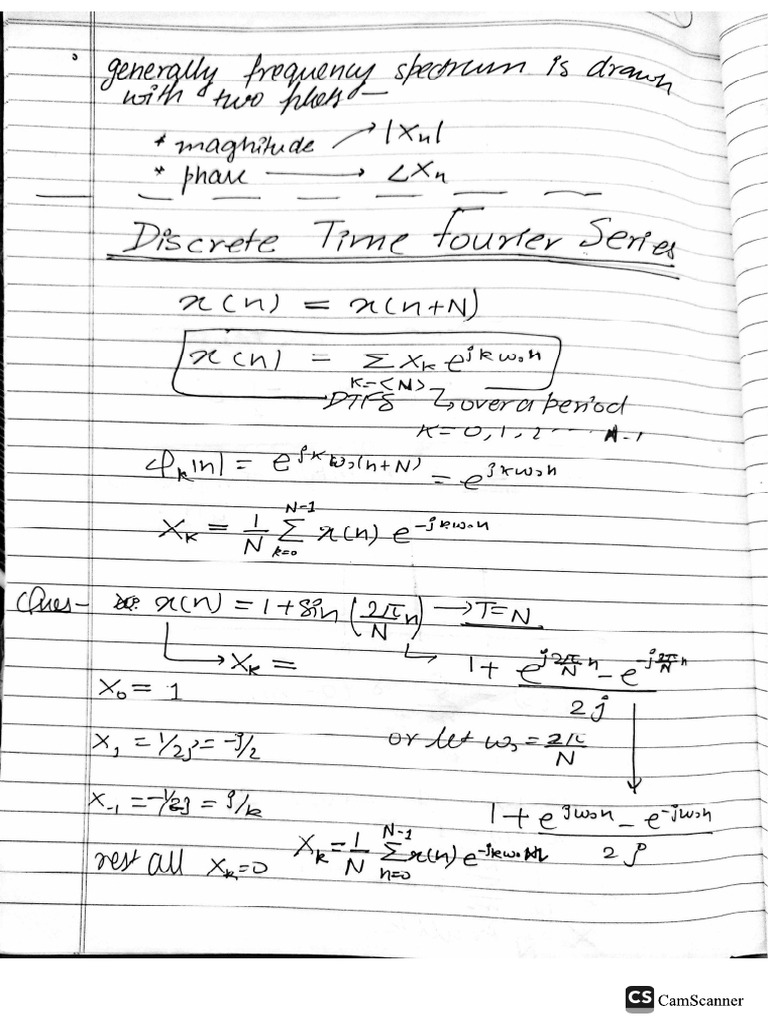 generally frequency spectrum is drawn
with two plots—
* magnitude → |Xn|
* phase → ∠Xn
Discrete Time fourier Series
x(n) = x(n+N)
x(n) = Σ Xk e^{jkω₀n}
K=<N>
DTFS ↳ over a period
K=0,1,2.....N-1
φk|n| = e^{jkω₀(n+N)} = e^{jkω₀n}
Xk = 1/N Σ_{k=0}^{N-1} x(n) e^{-jkω₀n}
Ques- x(n) = 1+Sin (2π/N n) → T=N
↳ Xk = ↳ 1+ (e^{j2π/N n} - e^{-j2π/N n})/2j
X₀ = 1
X₁ = 1/2j = -j/2 or let ω₀ = 2π/N
X₋₁ = -1/2j = j/2
1+ (e^{jω₀n} - e^{-jω₀n})/2j
rest all Xk=0 Xk = 1/N Σ_{n=0}^{N-1} x(n) e^{-jkω₀n}
CS CamScanner